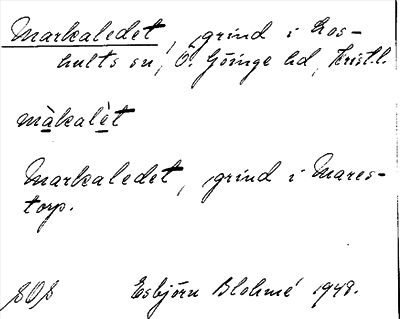 Markaledet, grind i Los-
hults sn, Ö. Göinge hd, Kristl.
màkalèt
Markaledet, grind i Mares-
torp.
SOS Esbjörn Blohmé 1948.